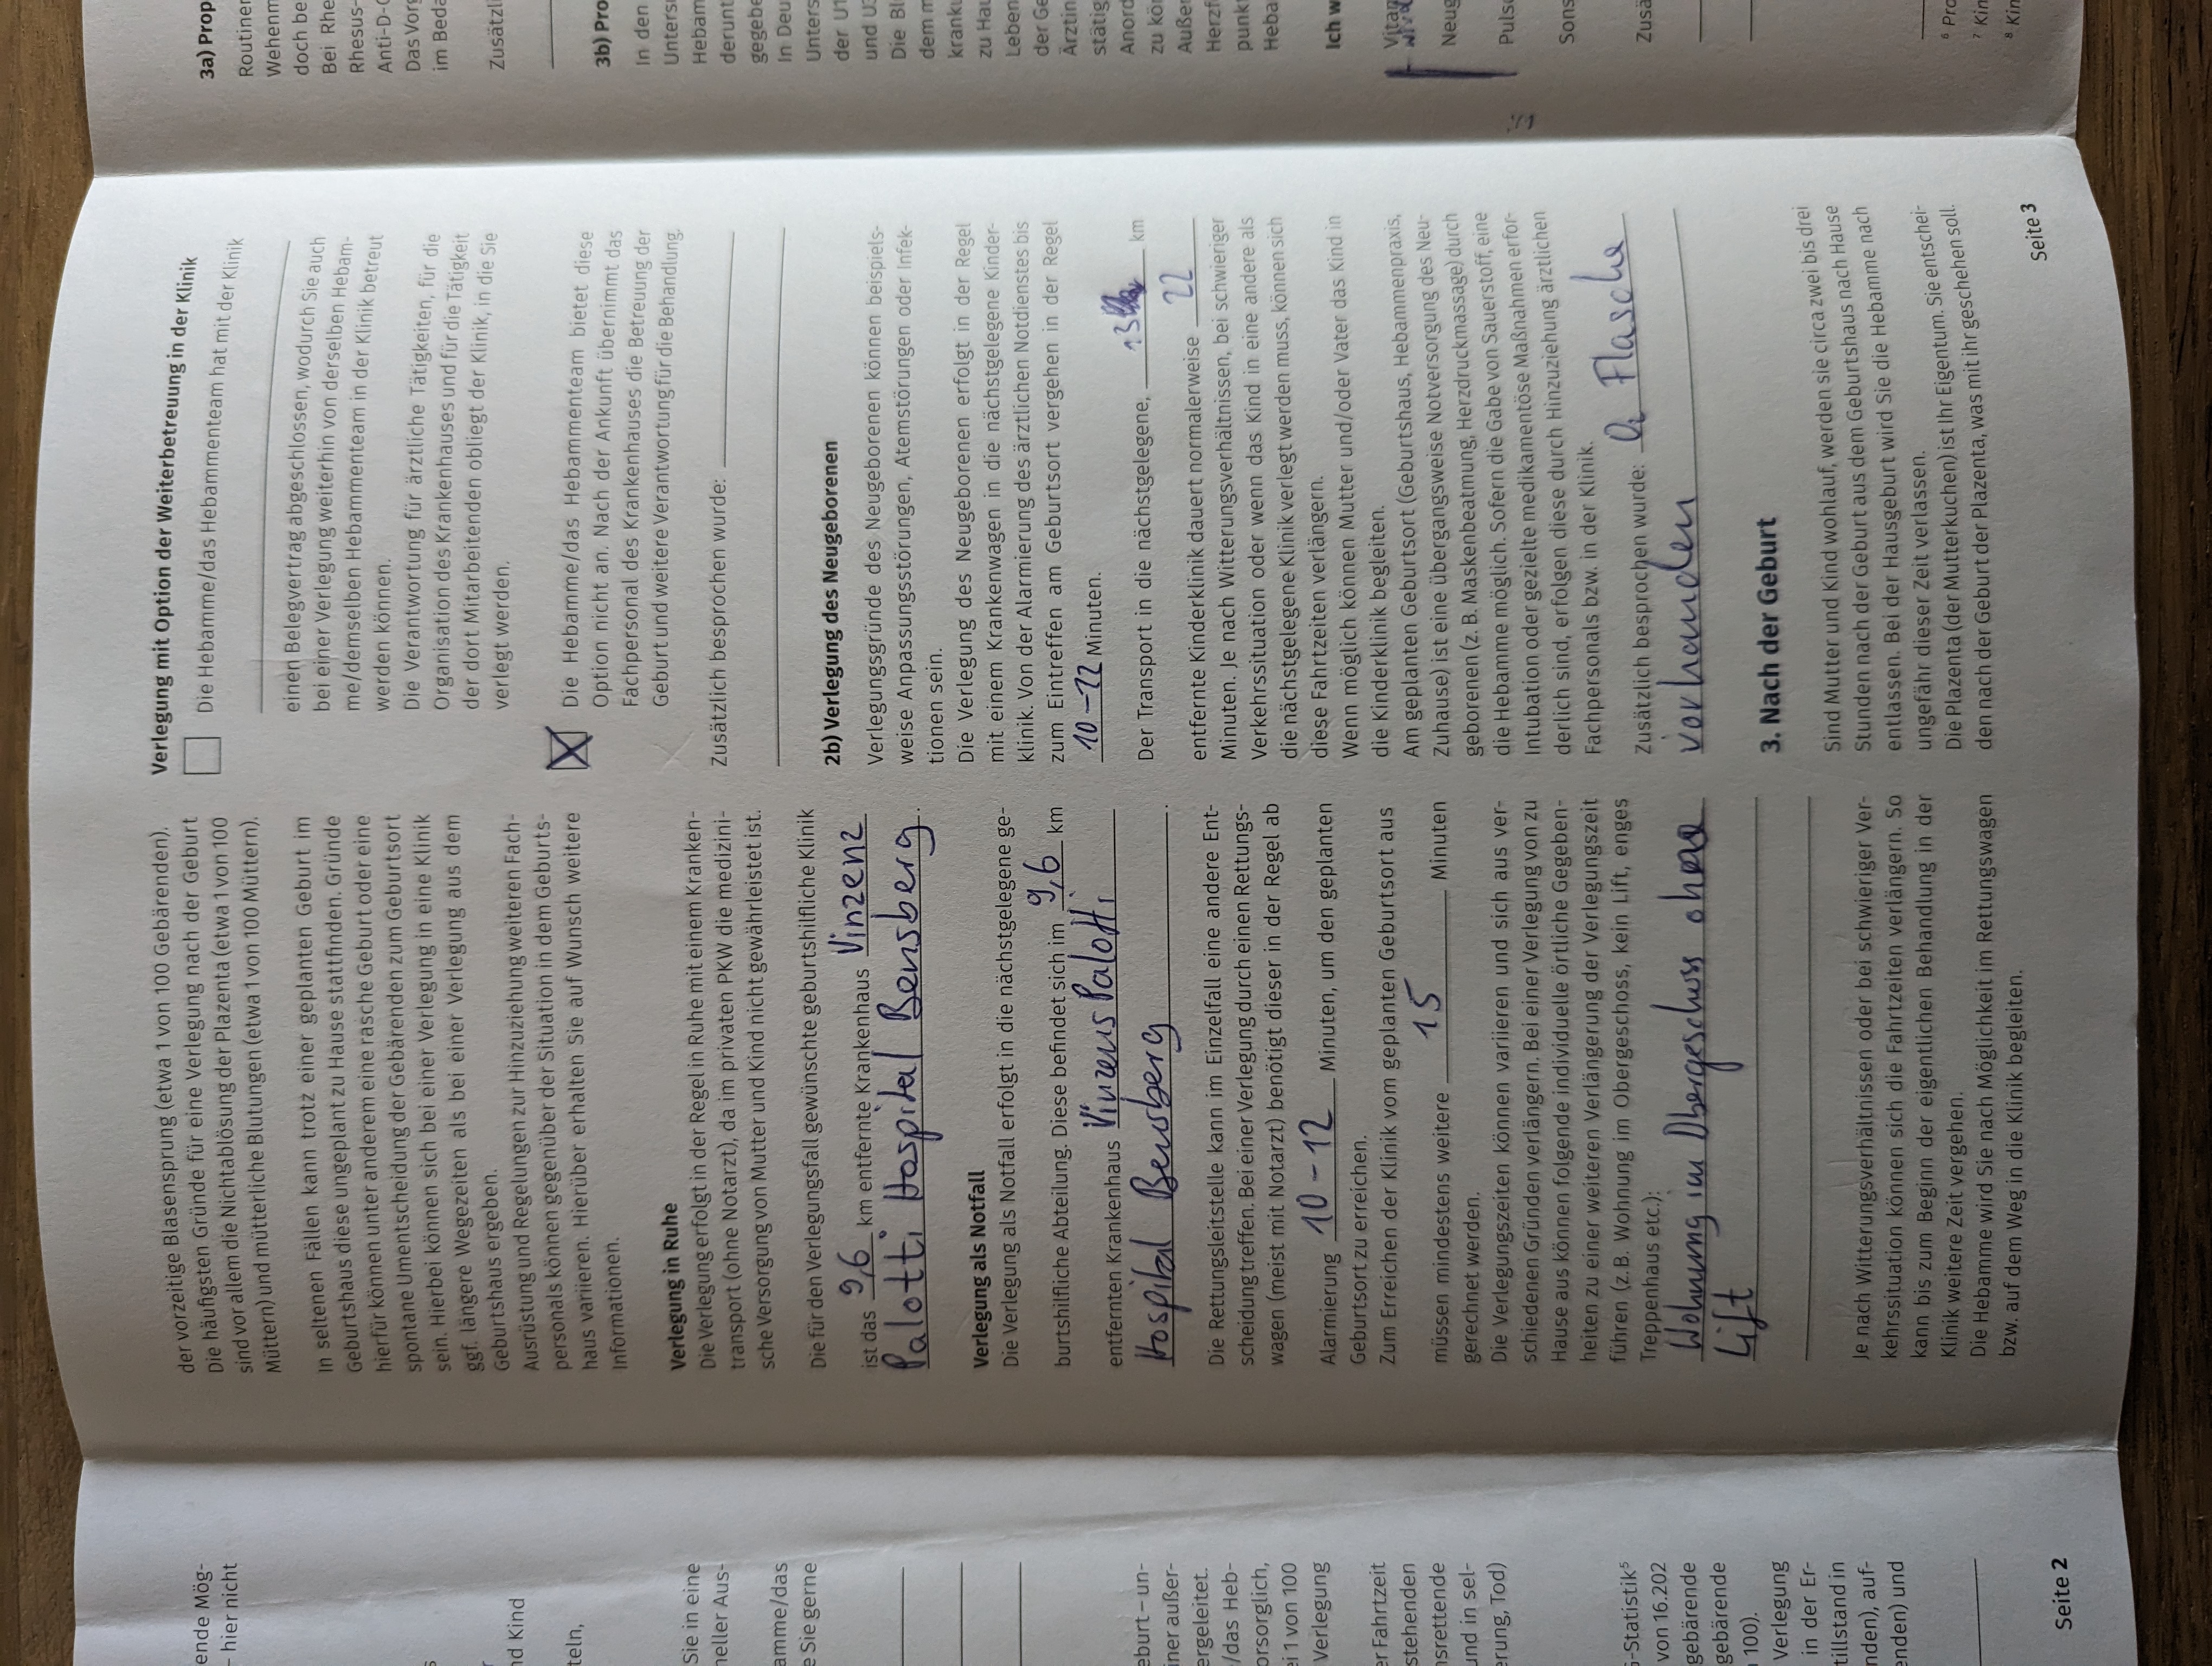 ende Mög-
– hier nicht
nd Kind
teln,
Sie in eine
neller Aus-
amme/das
e Sie gerne
eburt – un-
iner außer-
ergeleitet.
/das Heb-
orsorglich,
ei 1 von 100
Verlegung
er Fahrtzeit
stehenden
nsrettende
und in sel-
erung, Tod)
G-Statistik⁵
von 16.202
gebärende
gebärende
100).
Verlegung
in der Er-
tillstand in
nden), auf-
enden) und
Seite 2
der vorzeitige Blasensprung (etwa 1 von 100 Gebärenden).
Die häufigsten Gründe für eine Verlegung nach der Geburt
sind vor allem die Nichtablösung der Plazenta (etwa 1 von 100
Müttern) und mütterliche Blutungen (etwa 1 von 100 Müttern).
In seltenen Fällen kann trotz einer geplanten Geburt im
Geburtshaus diese ungeplant zu Hause stattfinden. Gründe
hierfür können unter anderem eine rasche Geburt oder eine
spontane Umentscheidung der Gebärenden zum Geburtsort
sein. Hierbei können sich bei einer Verlegung in eine Klinik
ggf. längere Wegezeiten als bei einer Verlegung aus dem
Geburtshaus ergeben.
Ausrüstung und Regelungen zur Hinzuziehung weiteren Fach-
personals können gegenüber der Situation in dem Geburts-
haus variieren. Hierüber erhalten Sie auf Wunsch weitere
Informationen.
Verlegung in Ruhe
Die Verlegung erfolgt in der Regel in Ruhe mit einem Kranken-
transport (ohne Notarzt), da im privaten PKW die medizini-
sche Versorgung von Mutter und Kind nicht gewährleistet ist.
Die für den Verlegungsfall gewünschte geburtshilfliche Klinik
ist das 9,6 km entfernte Krankenhaus Vinzenz
Palotti Hospital Bensberg.
Verlegung als Notfall
Die Verlegung als Notfall erfolgt in die nächstgelegene ge-
burtshilfliche Abteilung. Diese befindet sich im 9,6 km
entfernten Krankenhaus Vinzenz Palotti
Hospital Bensberg.
Die Rettungsleitstelle kann im Einzelfall eine andere Ent-
scheidung treffen. Bei einer Verlegung durch einen Rettungs-
wagen (meist mit Notarzt) benötigt dieser in der Regel ab
Alarmierung 10–12 Minuten, um den geplanten
Geburtsort zu erreichen.
Zum Erreichen der Klinik vom geplanten Geburtsort aus
müssen mindestens weitere 15 Minuten
gerechnet werden.
Die Verlegungszeiten können variieren und sich aus ver-
schiedenen Gründen verlängern. Bei einer Verlegung von zu
Hause aus können folgende individuelle örtliche Gegeben-
heiten zu einer weiteren Verlängerung der Verlegungszeit
führen (z. B. Wohnung im Obergeschoss, kein Lift, enges
Treppenhaus etc.):
Wohnung im Obergeschoss ohne
Lift
Je nach Witterungsverhältnissen oder bei schwieriger Ver-
kehrssituation können sich die Fahrtzeiten verlängern. So
kann bis zum Beginn der eigentlichen Behandlung in der
Klinik weitere Zeit vergehen.
Die Hebamme wird Sie nach Möglichkeit im Rettungswagen
bzw. auf dem Weg in die Klinik begleiten.
Verlegung mit Option der Weiterbetreuung in der Klinik
Die Hebamme/das Hebammenteam hat mit der Klinik
einen Belegvertrag abgeschlossen, wodurch Sie auch
bei einer Verlegung weiterhin von derselben Hebam-
me/demselben Hebammenteam in der Klinik betreut
werden können.
Die Verantwortung für ärztliche Tätigkeiten, für die
Organisation des Krankenhauses und für die Tätigkeit
der dort Mitarbeitenden obliegt der Klinik, in die Sie
verlegt werden.
X Die Hebamme/das Hebammenteam bietet diese
Option nicht an. Nach der Ankunft übernimmt das
Fachpersonal des Krankenhauses die Betreuung der
Geburt und weitere Verantwortung für die Behandlung.
Zusätzlich besprochen wurde:
2b) Verlegung des Neugeborenen
Verlegungsgründe des Neugeborenen können beispiels-
weise Anpassungsstörungen, Atemstörungen oder Infek-
tionen sein.
Die Verlegung des Neugeborenen erfolgt in der Regel
mit einem Krankenwagen in die nächstgelegene Kinder-
klinik. Von der Alarmierung des ärztlichen Notdienstes bis
zum Eintreffen am Geburtsort vergehen in der Regel
10–12 Minuten.
Der Transport in die nächstgelegene, 13 km
entfernte Kinderklinik dauert normalerweise 22
Minuten. Je nach Witterungsverhältnissen, bei schwieriger
Verkehrssituation oder wenn das Kind in eine andere als
die nächstgelegene Klinik verlegt werden muss, können sich
diese Fahrtzeiten verlängern.
Wenn möglich können Mutter und/oder Vater das Kind in
die Kinderklinik begleiten.
Am geplanten Geburtsort (Geburtshaus, Hebammenpraxis,
Zuhause) ist eine übergangsweise Notversorgung des Neu-
geborenen (z. B. Maskenbeatmung, Herzdruckmassage) durch
die Hebamme möglich. Sofern die Gabe von Sauerstoff, eine
Intubation oder gezielte medikamentöse Maßnahmen erfor-
derlich sind, erfolgen diese durch Hinzuziehung ärztlichen
Fachpersonals bzw. in der Klinik.
Zusätzlich besprochen wurde: O₂ Flasche
vorhanden
3. Nach der Geburt
Sind Mutter und Kind wohlauf, werden sie circa zwei bis drei
Stunden nach der Geburt aus dem Geburtshaus nach Hause
entlassen. Bei der Hausgeburt wird Sie die Hebamme nach
ungefähr dieser Zeit verlassen.
Die Plazenta (der Mutterkuchen) ist Ihr Eigentum. Sie entschei-
den nach der Geburt der Plazenta, was mit ihr geschehen soll.
Seite 3
3a) Prop
Routiner
Wehenm
doch be
Bei Rhe
Rhesus-
Anti-D-G
Das Vorg
im Beda
Zusätzli
3b) Pro
In den
Unters
Hebam
derunt
gegebe
In Deu
Unters
der U1
und U3
Die Bl
dem m
kranku
zu Hau
Leben
der Ge
Ärztin
stätig
Anord
zu kö
Außer
Herzf
punkt
Heba
Ich w
Vitam
Neug
Pulso
Sons
Zusä
⁶ Pro
⁷ Kin
⁸ Kin